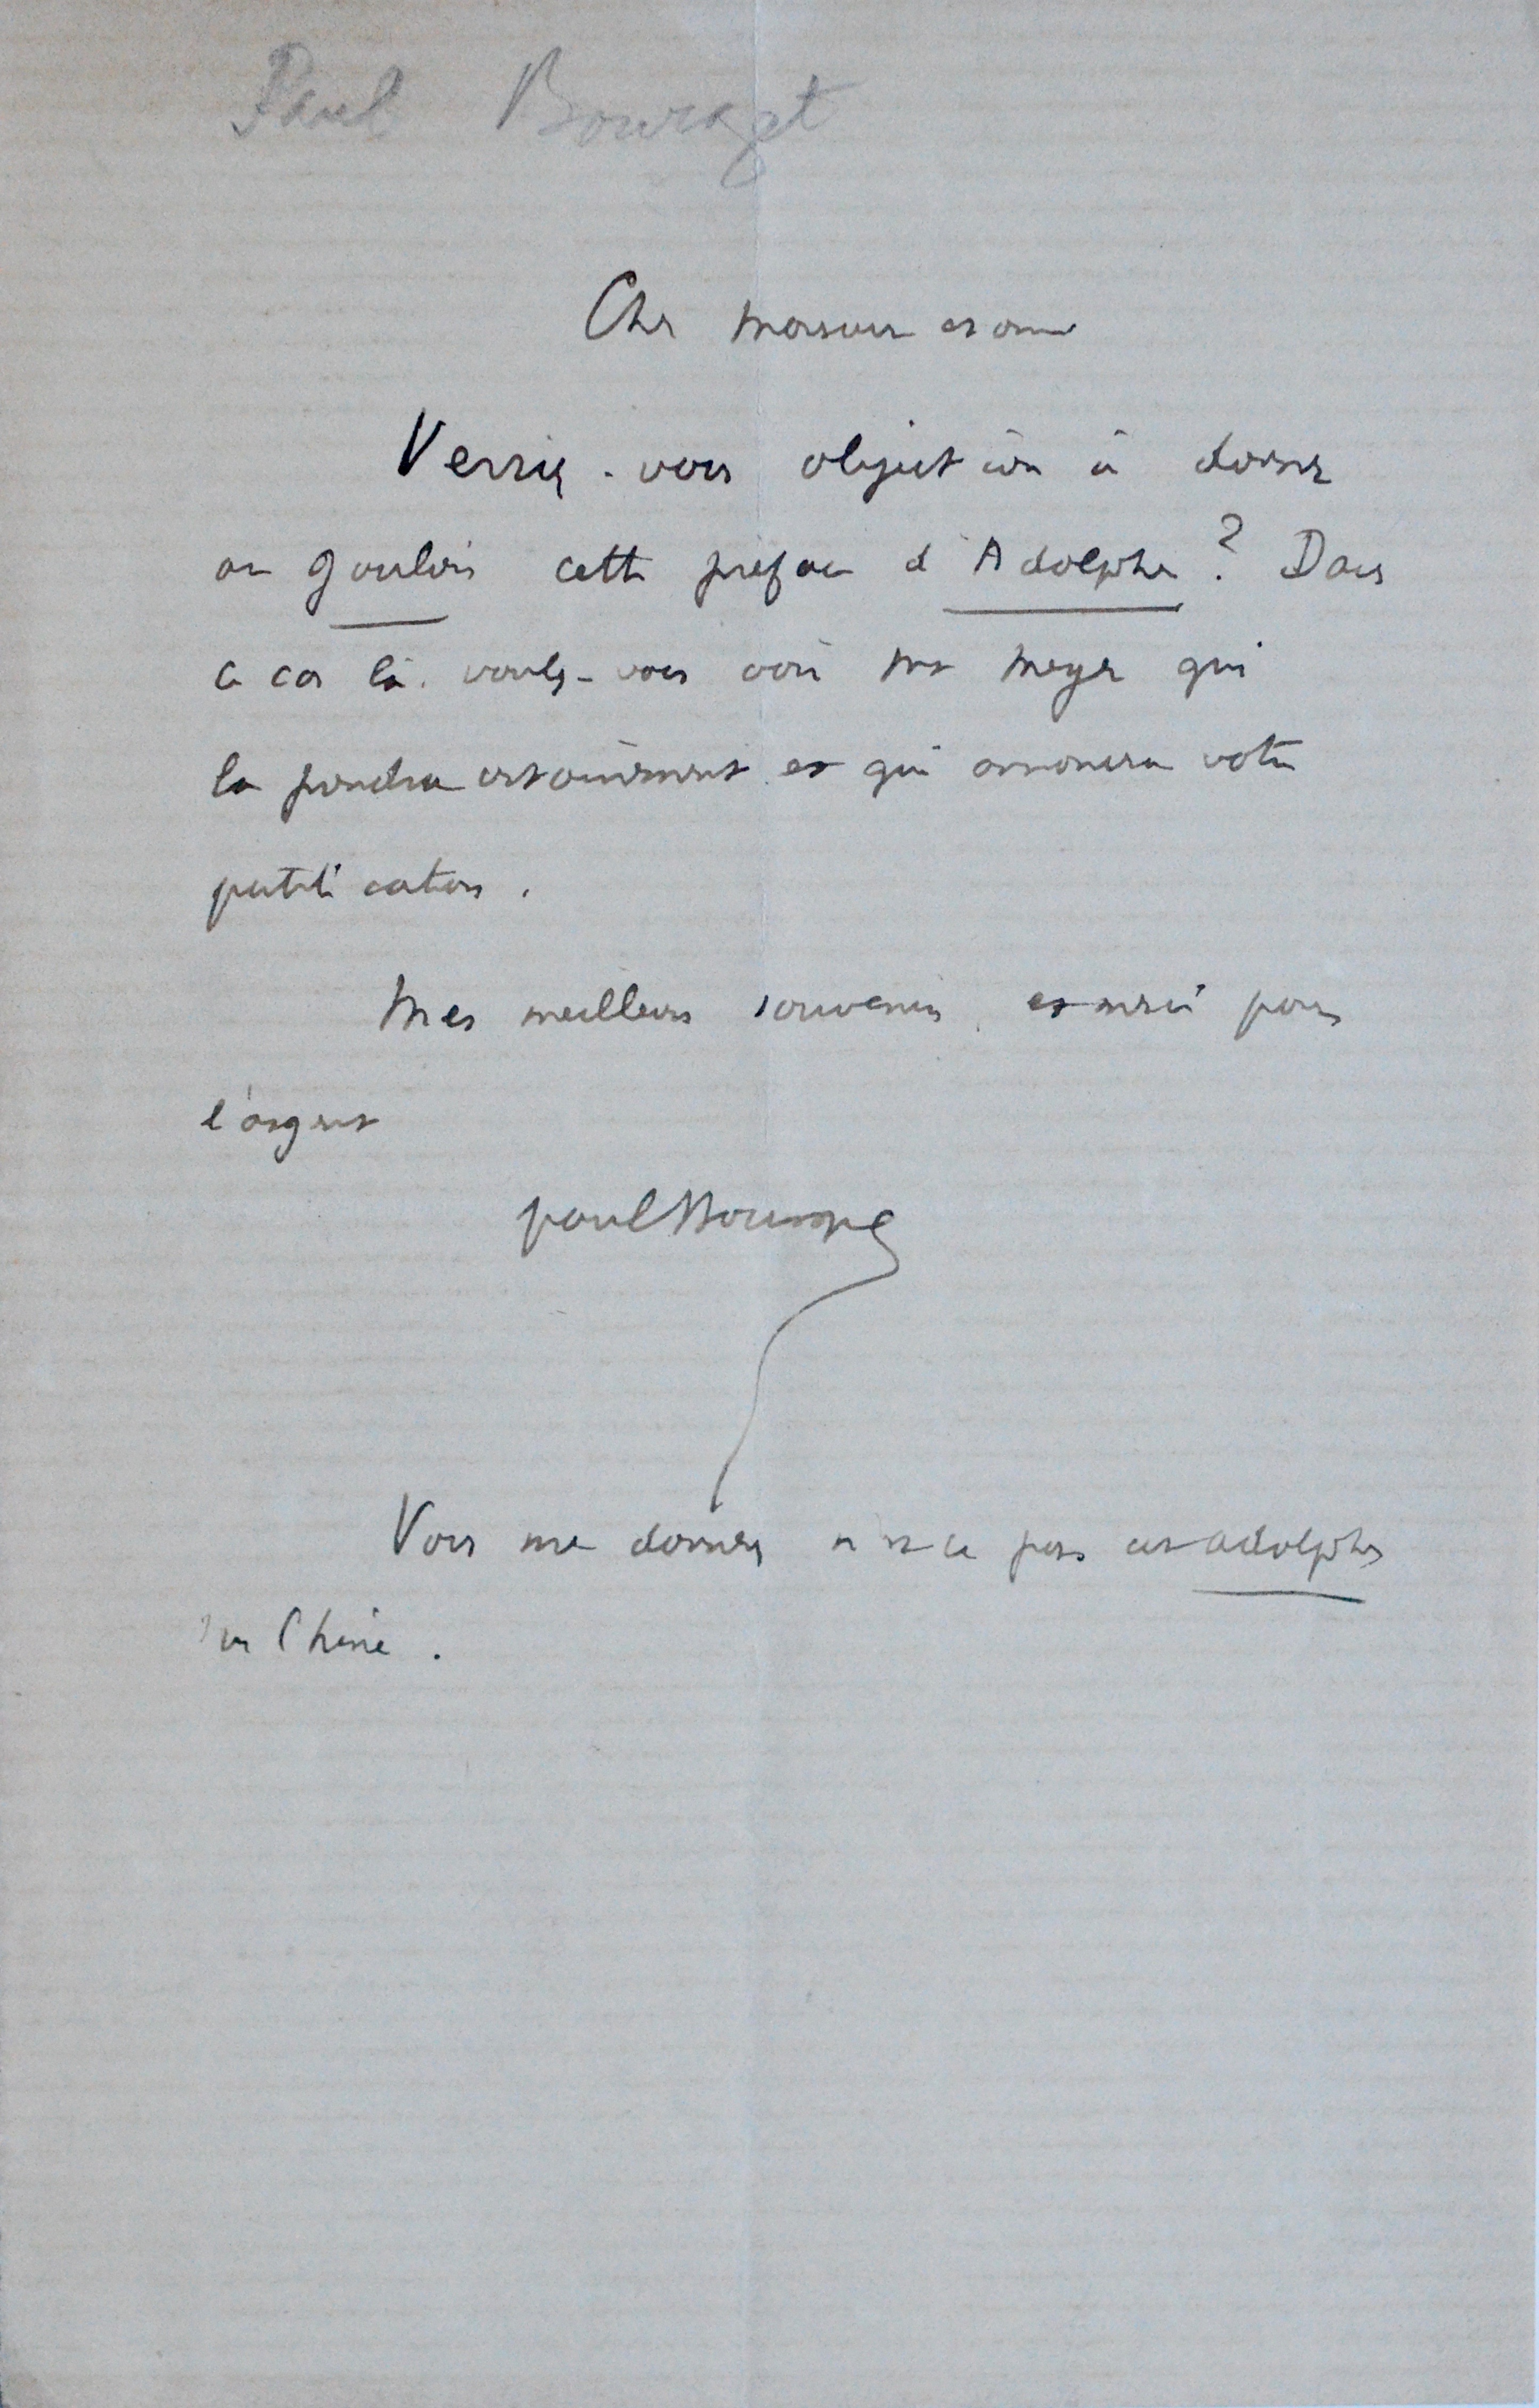 Paul Bourget
Cher Monsieur et ami
Verriez-vous objection à donner
au Gaulois cette préface d'Adolphe ? Dans
ce cas là. voulez-vous voir Mr Meyer qui
la prendra certainement et qui annoncera votre
publication.
Mes meilleurs souvenirs, et merci pour
l'argent
Paul Bourget
Vous me donnerez n'est-ce pas cet Adolphe
sur Chine.